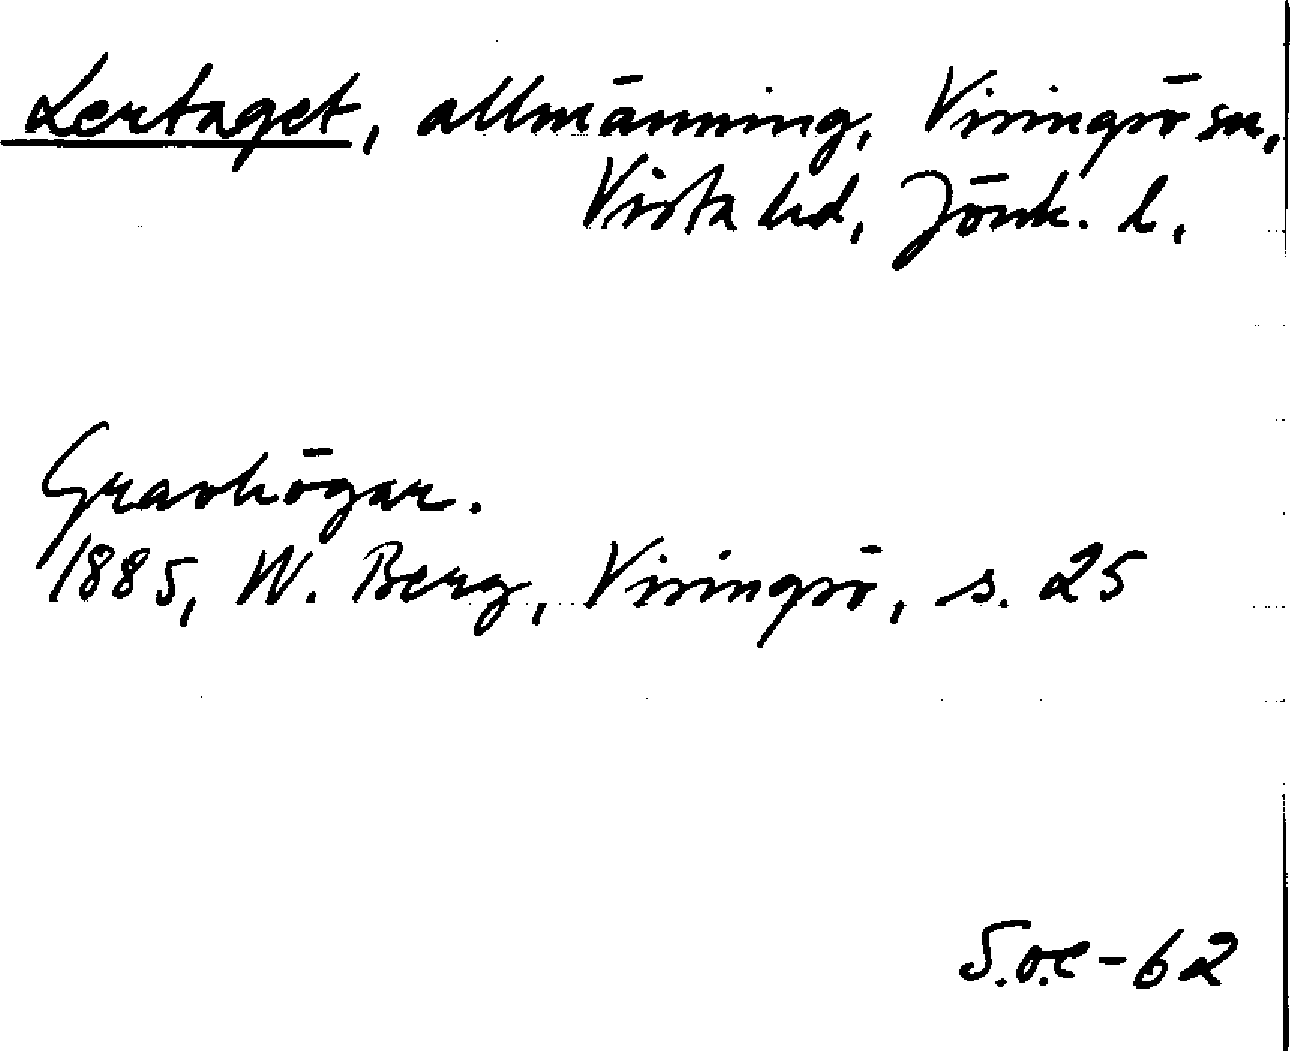 Lertaget, allmänning, Visingsö sn,
Vista hd, Jönk. l.
Gravhögar.
1885, W. Berg, Visingsö, s. 25
S.o.e-62